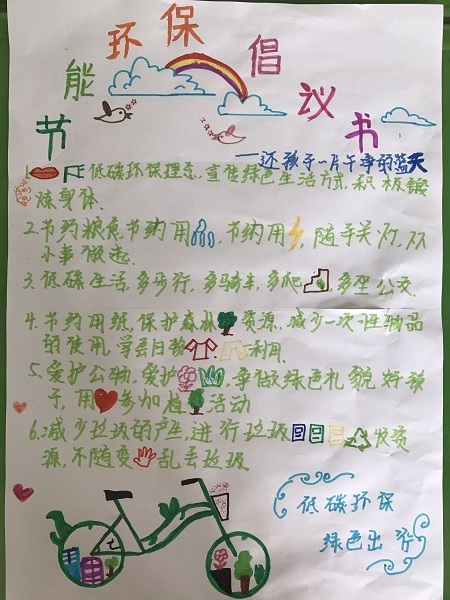 节能环保倡议书
——还孩子一片干净的蓝天
1. 低碳环保理念,宣传绿色生活方式,积极锻
炼身体.
2.节约粮食节约用,节约用,随手关灯,从
小事做起.
3.低碳生活,多步行,多骑车,多爬,多坐公交.
4.节约用纸,保护森林资源,减少一次性物品
的使用,学会旧物利用.
5.爱护公物,爱护,争做绿色礼貌好孩
子,用参加植活动
6.减少垃圾的产生,进行垃圾发资
源,不随变乱丢垃圾.
低碳环保
绿色出行